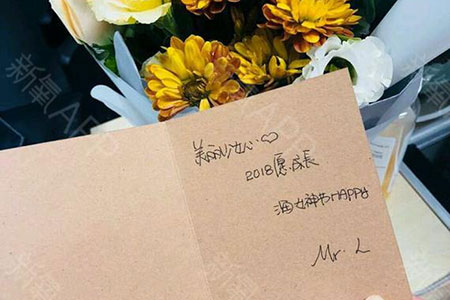 美丽少女心♡
2018愿成長
女神节HAPPY
Mr. L
新氧APP